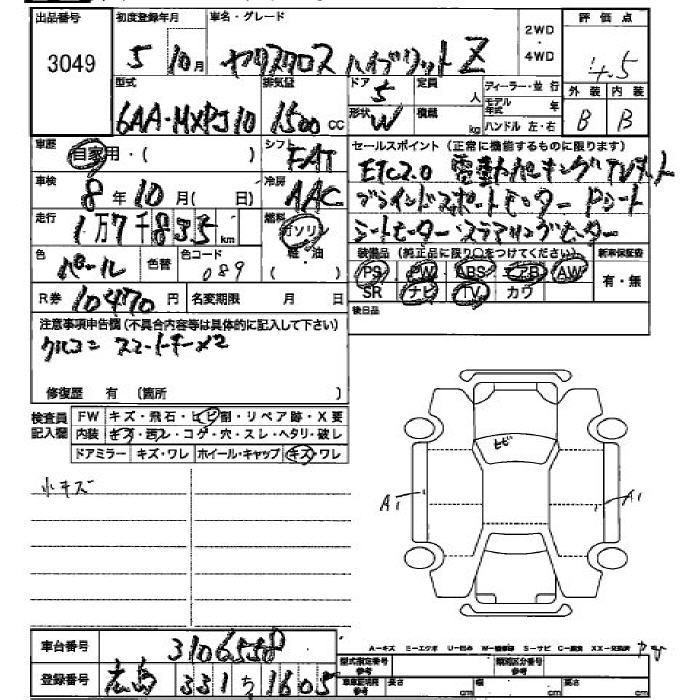 出品番号 初度登録年月 車名・グレード 2WD 評価点
3049 5 10月 ヤリスクロス ハイブリッド Z 4WD 4.5
型式 排気量 ドア 5 定員 人 ディーラー・並行 外装 内装
6AA・MXPJ10 1500cc 形状 W 積載 kg モデル年式 年 ハンドル 左・右 B B
車歴 自家用・( ) シフト FAT セールスポイント(正常に機能するものに限ります)
車検 8年10月( 日) 冷房 AAC ETC2.0 電動パーキング TVキット
走行 1万7千835km 燃料 ガソリン ブラインドスポットモニター Pシート
軽・油 シートヒーター ステアリングヒーター
色 パール 色替 色コード 089 装備品(純正品に限り○をつけてください) 新車保証書
PS PW ABS エアB AW 有・無
R券 10470円 名変期限 月 日 SR ナビ TV カワ
注意事項申告欄(不具合内容等は具体的に記入して下さい) 後日品
クルコン スマートキー×2
修復歴 有 (箇所 )
検査員記入欄 FW キズ・飛石・ヒビ割・リペア跡・X要
内装 キズ・汚レ・コゲ・穴・スレ・ヘタリ・破レ
ドアミラー キズ・ワレ ホイール・キャップ キズ・ワレ
ヒビ
小キズ
A1 A1
車台番号 3106558
A-キズ M-エクボ U-凹み W-補修跡 S-サビ C-腐食 XX-交換済
登録番号 広島 331 ち 1605
型式指定番号 参考 類別区分番号 参考
車車証明用 参考 長さ cm 幅 cm 高さ cm